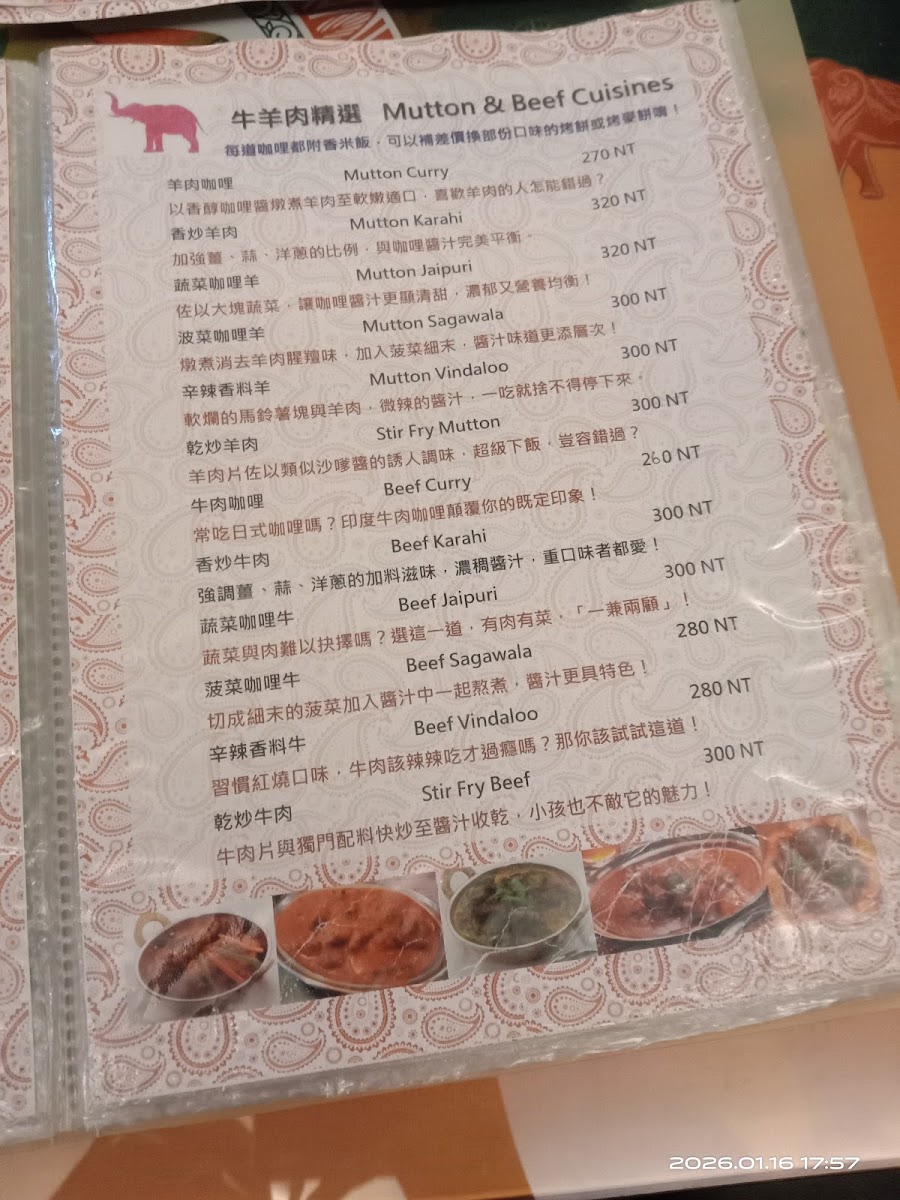 牛羊肉精選 Mutton & Beef Cuisines
每道咖哩都附香米飯，可以補差價換部份口味的烤餅或烤麥餅唷！
羊肉咖哩 Mutton Curry 270 NT
以香醇咖哩醬燉煮羊肉至軟嫩適口，喜歡羊肉的人怎能錯過？
香炒羊肉 Mutton Karahi 320 NT
加強薑、蒜、洋蔥的比例，與咖哩醬汁完美平衡。
蔬菜咖哩羊 Mutton Jaipuri 320 NT
佐以大塊蔬菜，讓咖哩醬汁更顯清甜，濃郁又營養均衡！
波菜咖哩羊 Mutton Sagawala 300 NT
燉煮消去羊肉腥羶味，加入菠菜細末，醬汁味道更添層次！
辛辣香料羊 Mutton Vindaloo 300 NT
軟爛的馬鈴薯塊與羊肉，微辣的醬汁，一吃就捨不得停下來。
乾炒羊肉 Stir Fry Mutton 300 NT
羊肉片佐以類似沙嗲醬的誘人調味，超級下飯，豈容錯過？
牛肉咖哩 Beef Curry 260 NT
常吃日式咖哩嗎？印度牛肉咖哩顛覆你的既定印象！
香炒牛肉 Beef Karahi 300 NT
強調薑、蒜、洋蔥的加料滋味，濃稠醬汁，重口味者都愛！
蔬菜咖哩牛 Beef Jaipuri 300 NT
蔬菜與肉難以抉擇嗎？選這一道，有肉有菜，「一兼兩顧」！
菠菜咖哩牛 Beef Sagawala 280 NT
切成細末的菠菜加入醬汁中一起熬煮，醬汁更具特色！
辛辣香料牛 Beef Vindaloo 280 NT
習慣紅燒口味，牛肉該辣辣吃才過癮嗎？那你該試試這道！
乾炒牛肉 Stir Fry Beef 300 NT
牛肉片與獨門配料快炒至醬汁收乾，小孩也不敵它的魅力！
2026.01.16 17:57